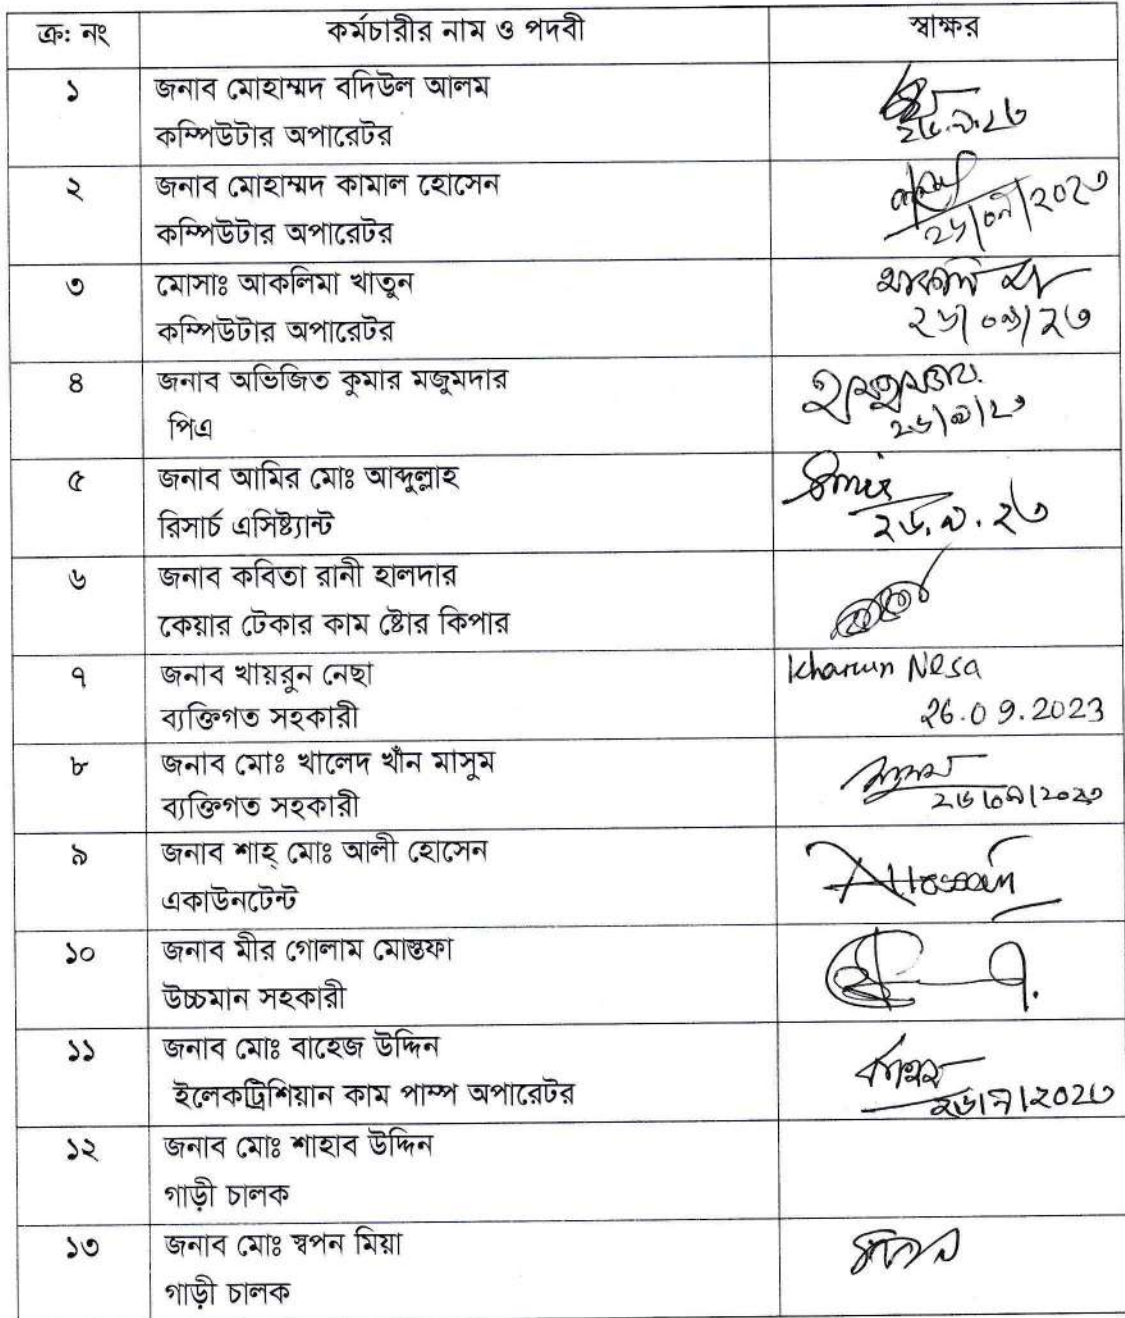 ক্র: নং কর্মচারীর নাম ও পদবী স্বাক্ষর
১ জনাব মোহাম্মদ বদিউল আলম
কম্পিউটার অপারেটর
২৬.৯.২৩
২ জনাব মোহাম্মদ কামাল হোসেন
কম্পিউটার অপারেটর
২৬/০৯/২০২৩
৩ মোসাঃ আকলিমা খাতুন
কম্পিউটার অপারেটর
২৬/০৯/২৩
৪ জনাব অভিজিত কুমার মজুমদার
পিএ
২৬/৯/২৩
৫ জনাব আমির মোঃ আব্দুল্লাহ
রিসার্চ এসিষ্ট্যান্ট
২৬.৯.২৩
৬ জনাব কবিতা রানী হালদার
কেয়ার টেকার কাম ষ্টোর কিপার
৭ জনাব খায়রুন নেছা Kharun Nesa
ব্যক্তিগত সহকারী 26.09.2023
৮ জনাব মোঃ খালেদ খাঁন মাসুম
ব্যক্তিগত সহকারী ২৬/০৯/২০২৩
৯ জনাব শাহ্ মোঃ আলী হোসেন
একাউনটেন্ট
১০ জনাব মীর গোলাম মোস্তফা
উচ্চমান সহকারী
১১ জনাব মোঃ বাহেজ উদ্দিন
ইলেকট্রিশিয়ান কাম পাম্প অপারেটর ২৬/৯/২০২৩
১২ জনাব মোঃ শাহাব উদ্দিন
গাড়ী চালক
১৩ জনাব মোঃ স্বপন মিয়া
গাড়ী চালক